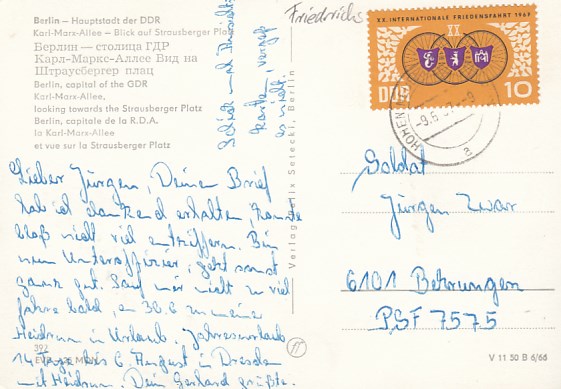 Berlin – Hauptstadt der DDR
Karl-Marx-Allee – Blick auf Strausberger Platz
Берлин — столица ГДР
Карл-Маркс-Аллее Вид на
Штраусбергер плац
Berlin, capital of the GDR
Karl-Marx-Allee,
looking towards the Strausberger Platz
Berlin, capitale de la R.D.A.
la Karl-Marx-Allee
et vue sur la Strausberger Platz
Schick mal Ansicht-
karte, vergeß
es nicht.
Lieber Jürgen, Deine Brief
hab ich dankend erhalten, konnte
bloß nicht viel entziffern. Bin
nun Unteroffizier, geht sonst
ganz gut. Sauf mir nicht zu viel
fahre bald, am 30.6 zu meine
Heidrun in Urlaub. Jahresurlaub
14 Tage bis 6. August in Dresden
mit Heidrun. Dein Gerhard grüßt.
392
Verlag Felix Setecki, Berlin
Friedrichs
XX. INTERNATIONALE FRIEDENSFAHRT 1967
XX
DDR 10
HOHEN
-9.6.
a
Soldat
Jürgen Zwar
6101 Behrungen
PSF 7575
V 11 50 B 6/66